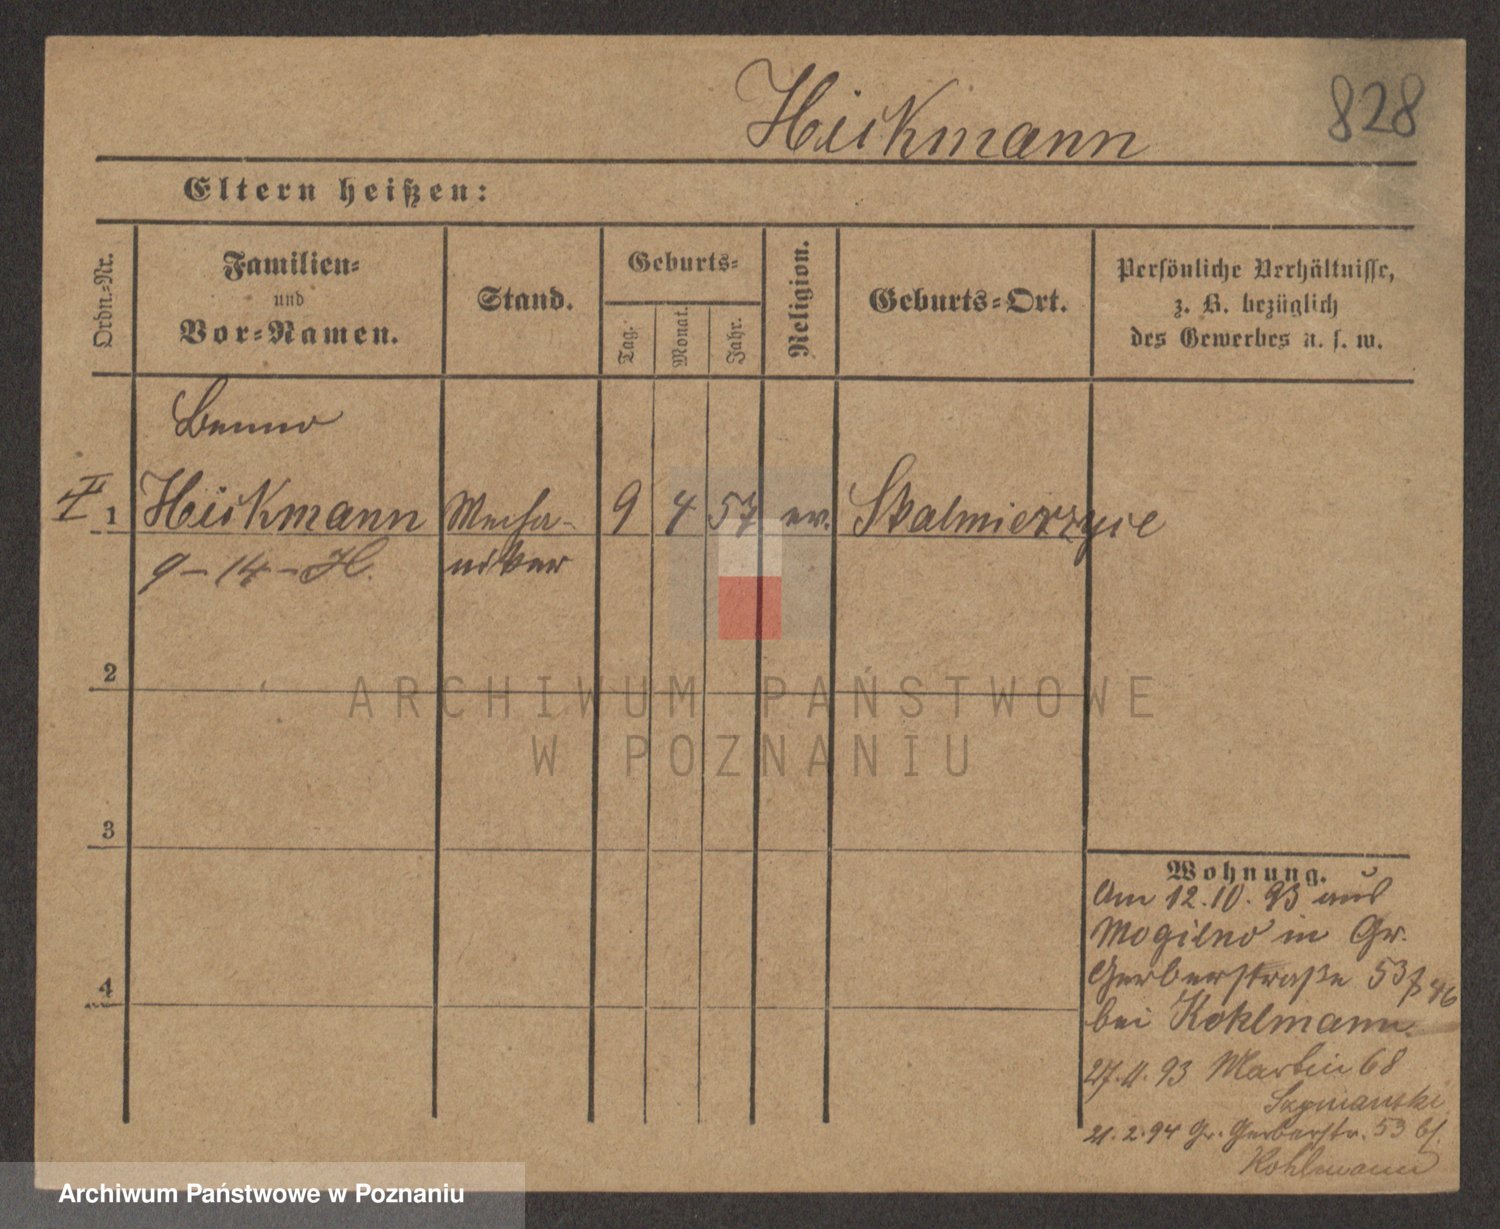 Hickmann
828
Eltern heißen:
Ordn.-Nr.
Familien-
und
Vor-Namen.
Stand.
Geburts-
Tag.
Monat.
Jahr.
Religion.
Geburts-Ort.
Persönliche Verhältnisse,
z. B. bezüglich
des Gewerbes u. s. w.
Benno
1 Hickmann Mecha- 9 4 57 ev. Skalmierzyce
9-14-H. niker
2
3
4
Wohnung.
Am 12.10.93 aus
Mogilno in Gr.
Gerberstraße 53
bei Kohlmann.
27.11.93 Martin 68
Szymanski
21.2.94 Gr. Gerberstr. 53 bf.
Kohlmann
ARCHIWUM PAŃSTWOWE
W POZNANIU
Archiwum Państwowe w Poznaniu